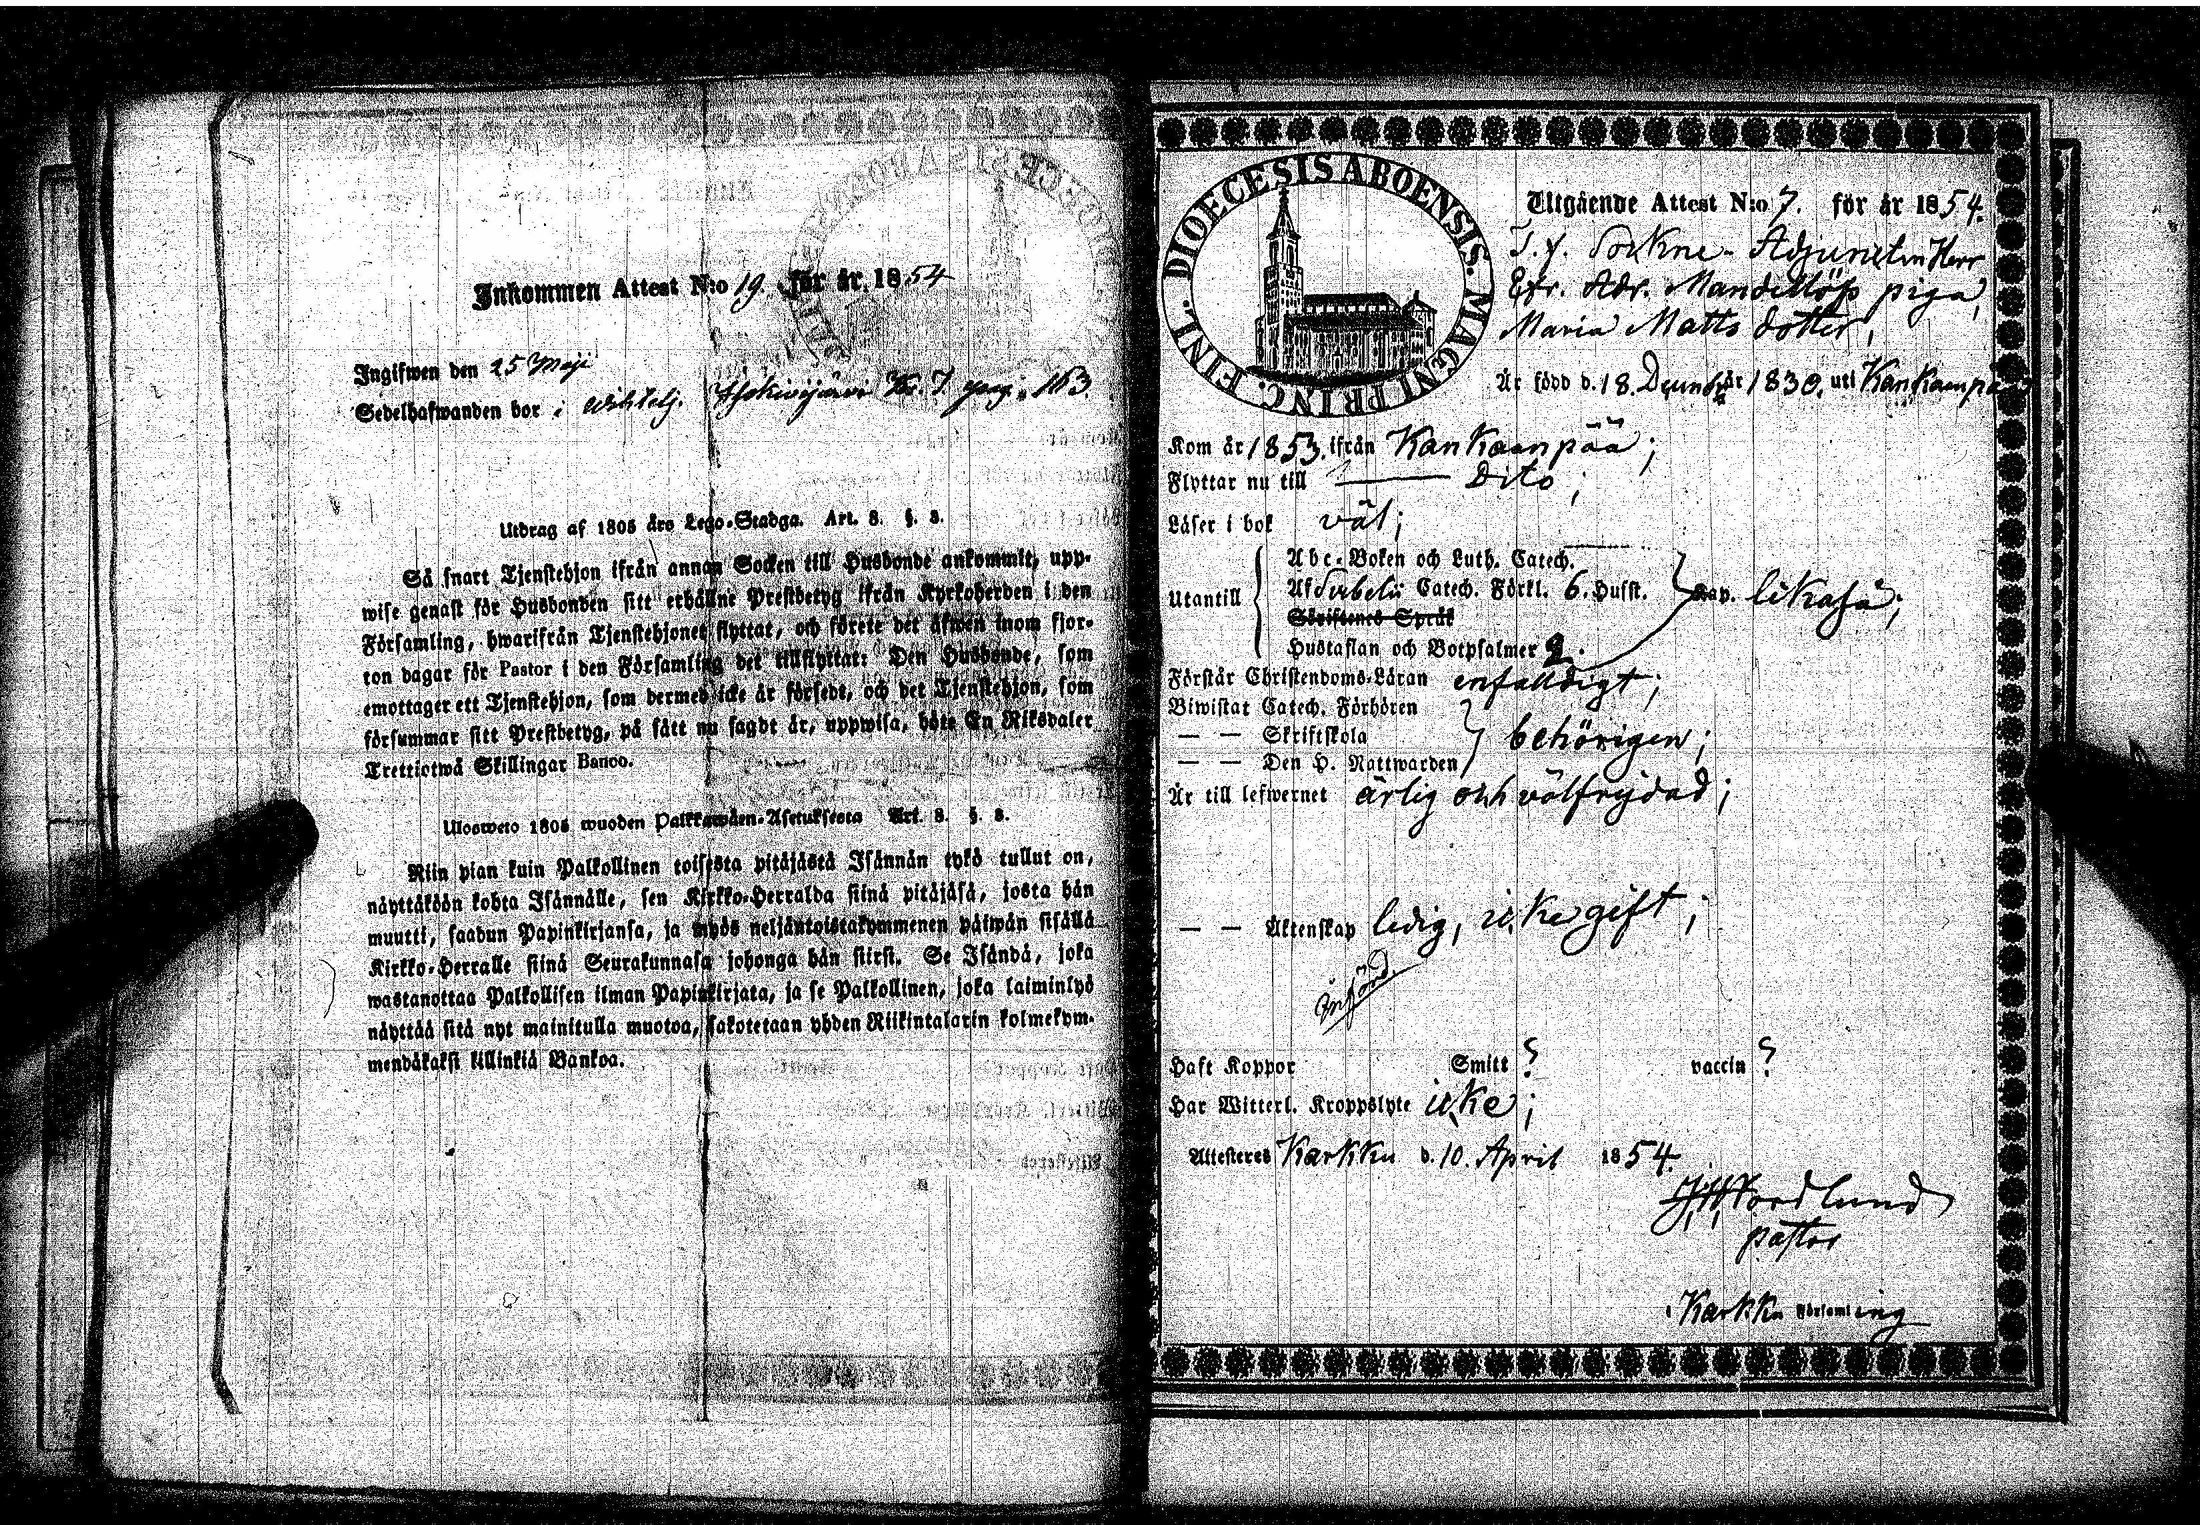 Inkommen Attest N:o 19. för år. 1854
Ingifwen den 25 Maji
Sedelhafwanden bor i
Utdrag af 1805 års Lego-Stadga. Art. 8. §. 8.
Så snart Tjenstehjon ifrån annan Socken till Husbonde ankommit, upp-
wise genast för Husbonden sitt erhållne Prestbetyg ifrån Kyrkoherden i den
Församling, hwarifrån Tjenstehjonet flyttat, och förete det äfwen inom fjor-
ton dagar för Pastor i den Församling det tillflyttat: Den Husbonde, som
emottager ett Tjenstehjon, som dermed icke är försedt, och det Tjenstehjon, som
försummar sitt Prestbetyg, på sätt nu sagdt är, uppwisa, böte En Riksdaler
Trettiotwå Skillingar Banco.
Ulosweto 1805 wuoden Palkkawäen-Asetuksesta Art. 8. §. 8.
Niin pian kuin Palkollinen toisesta pitäjästä Isännän tykö tullut on,
näyttäköön kohta Isännälle, sen Kirkko-Herralda siinä pitäjäsä, josta hän
muutti, saadun Papinkirjansa, ja myös neljäntoistakymmenen päiwän sisällä
Kirkko-Herralle siinä Seurakunnasa johonga hän siirsi. Se Isändä, joka
wastanottaa Palkollisen ilman Papinkirjata, ja se Palkollinen, joka laiminlyö
näyttää sitä nyt mainitulla muotoa, sakotetaan yhden Riikintalarin kolmekym-
mendäkaksi killinkiä Bankoa.
DIOECESIS ABOENSIS. MAGNI PRINC. FINL.
Utgående Attest N:o 7. för år 1854.
Sockne-Adjuncten Herr
Efr. Adr. Mandellöfs piga,
Maria Matts dotter,
Är född d. 18. Decemb. år 1830. uti Kankaanpää
Kom år 1853. ifrån Kankaanpää;
Flyttar nu till — Dito;
Läser i bok väl;
Utantill
Abc-Boken och Luth. Catech.
Af Svebelii Catech. Förkl. 6. Hufst. Kap. likaså;
Skriftenes Språk
Hustaflan och Botpsalmer 2.
Förstår Christendoms-Läran enfaldigt;
Biwistat Catech. Förhören
— — Skriftskola behörigen;
— — Den H. Nattwarden
Är till lefwernet ärlig och välfrejdad;
— — Äktenskap ledig, icke gift;
Införd.
Haft Koppor Smitt ? vaccin ?
Har Witterl. Kroppslyte icke;
Attesteres Karkku d. 10. April 1854.
Nordlund
pastor
i Karkku Församling